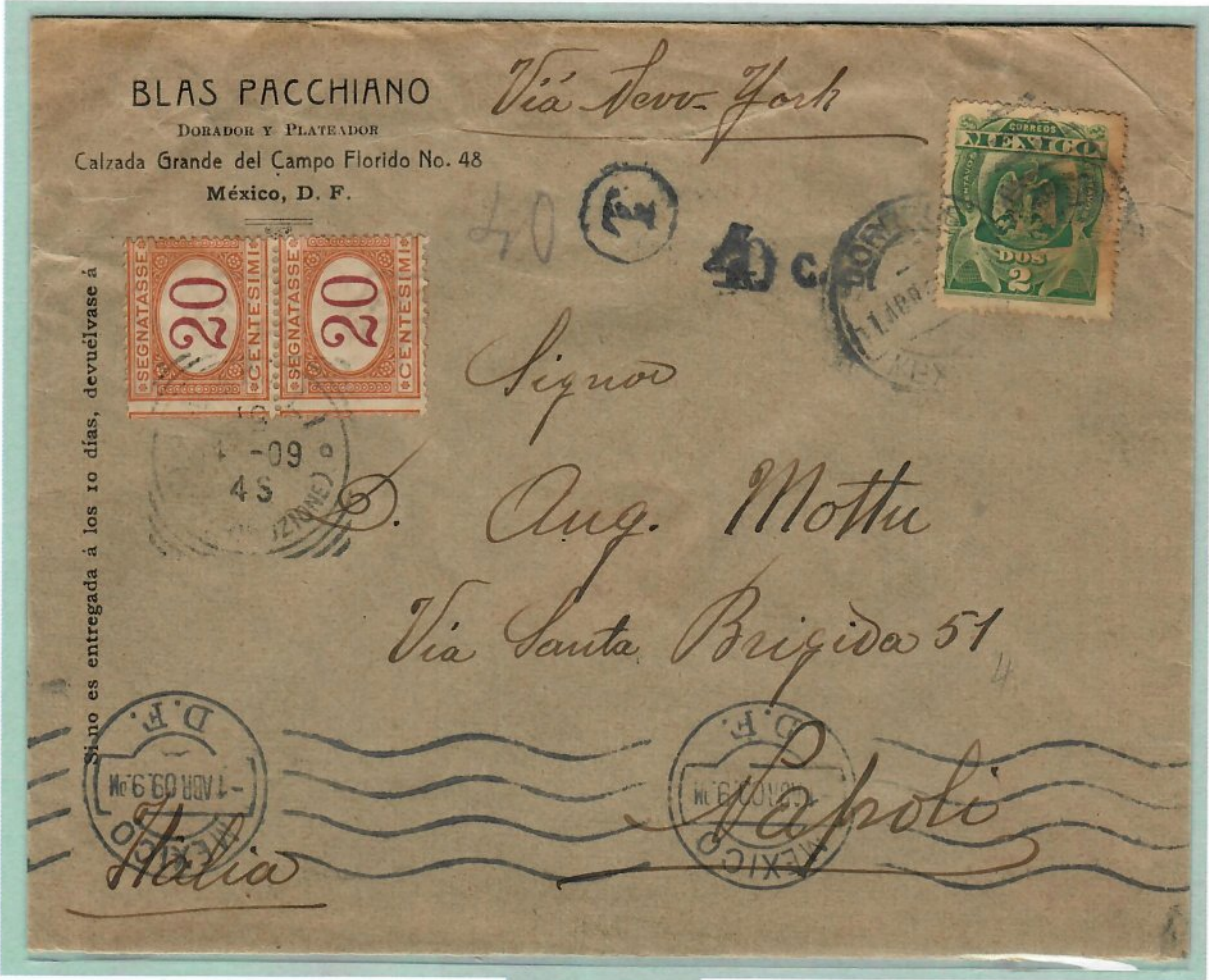 BLAS PACCHIANO
DORADOR Y PLATEADOR
Calzada Grande del Campo Florido No. 48
México, D. F.
Viá New-York
CORREOS
MEXICO
DOS
2
T
40
40 c.
SEGNATASSE
20
CENTESIMI
SEGNATASSE
20
CENTESIMI
-09
4S
Si no es entregada á los 10 días, devuélvase á
Signor
D. Aug. Mottu
Via Santa Brigida 51
4
Napoli
Italia
MEXICO
-1 ABR 09. 9. PM
D. F.
MEXICO
D. F.